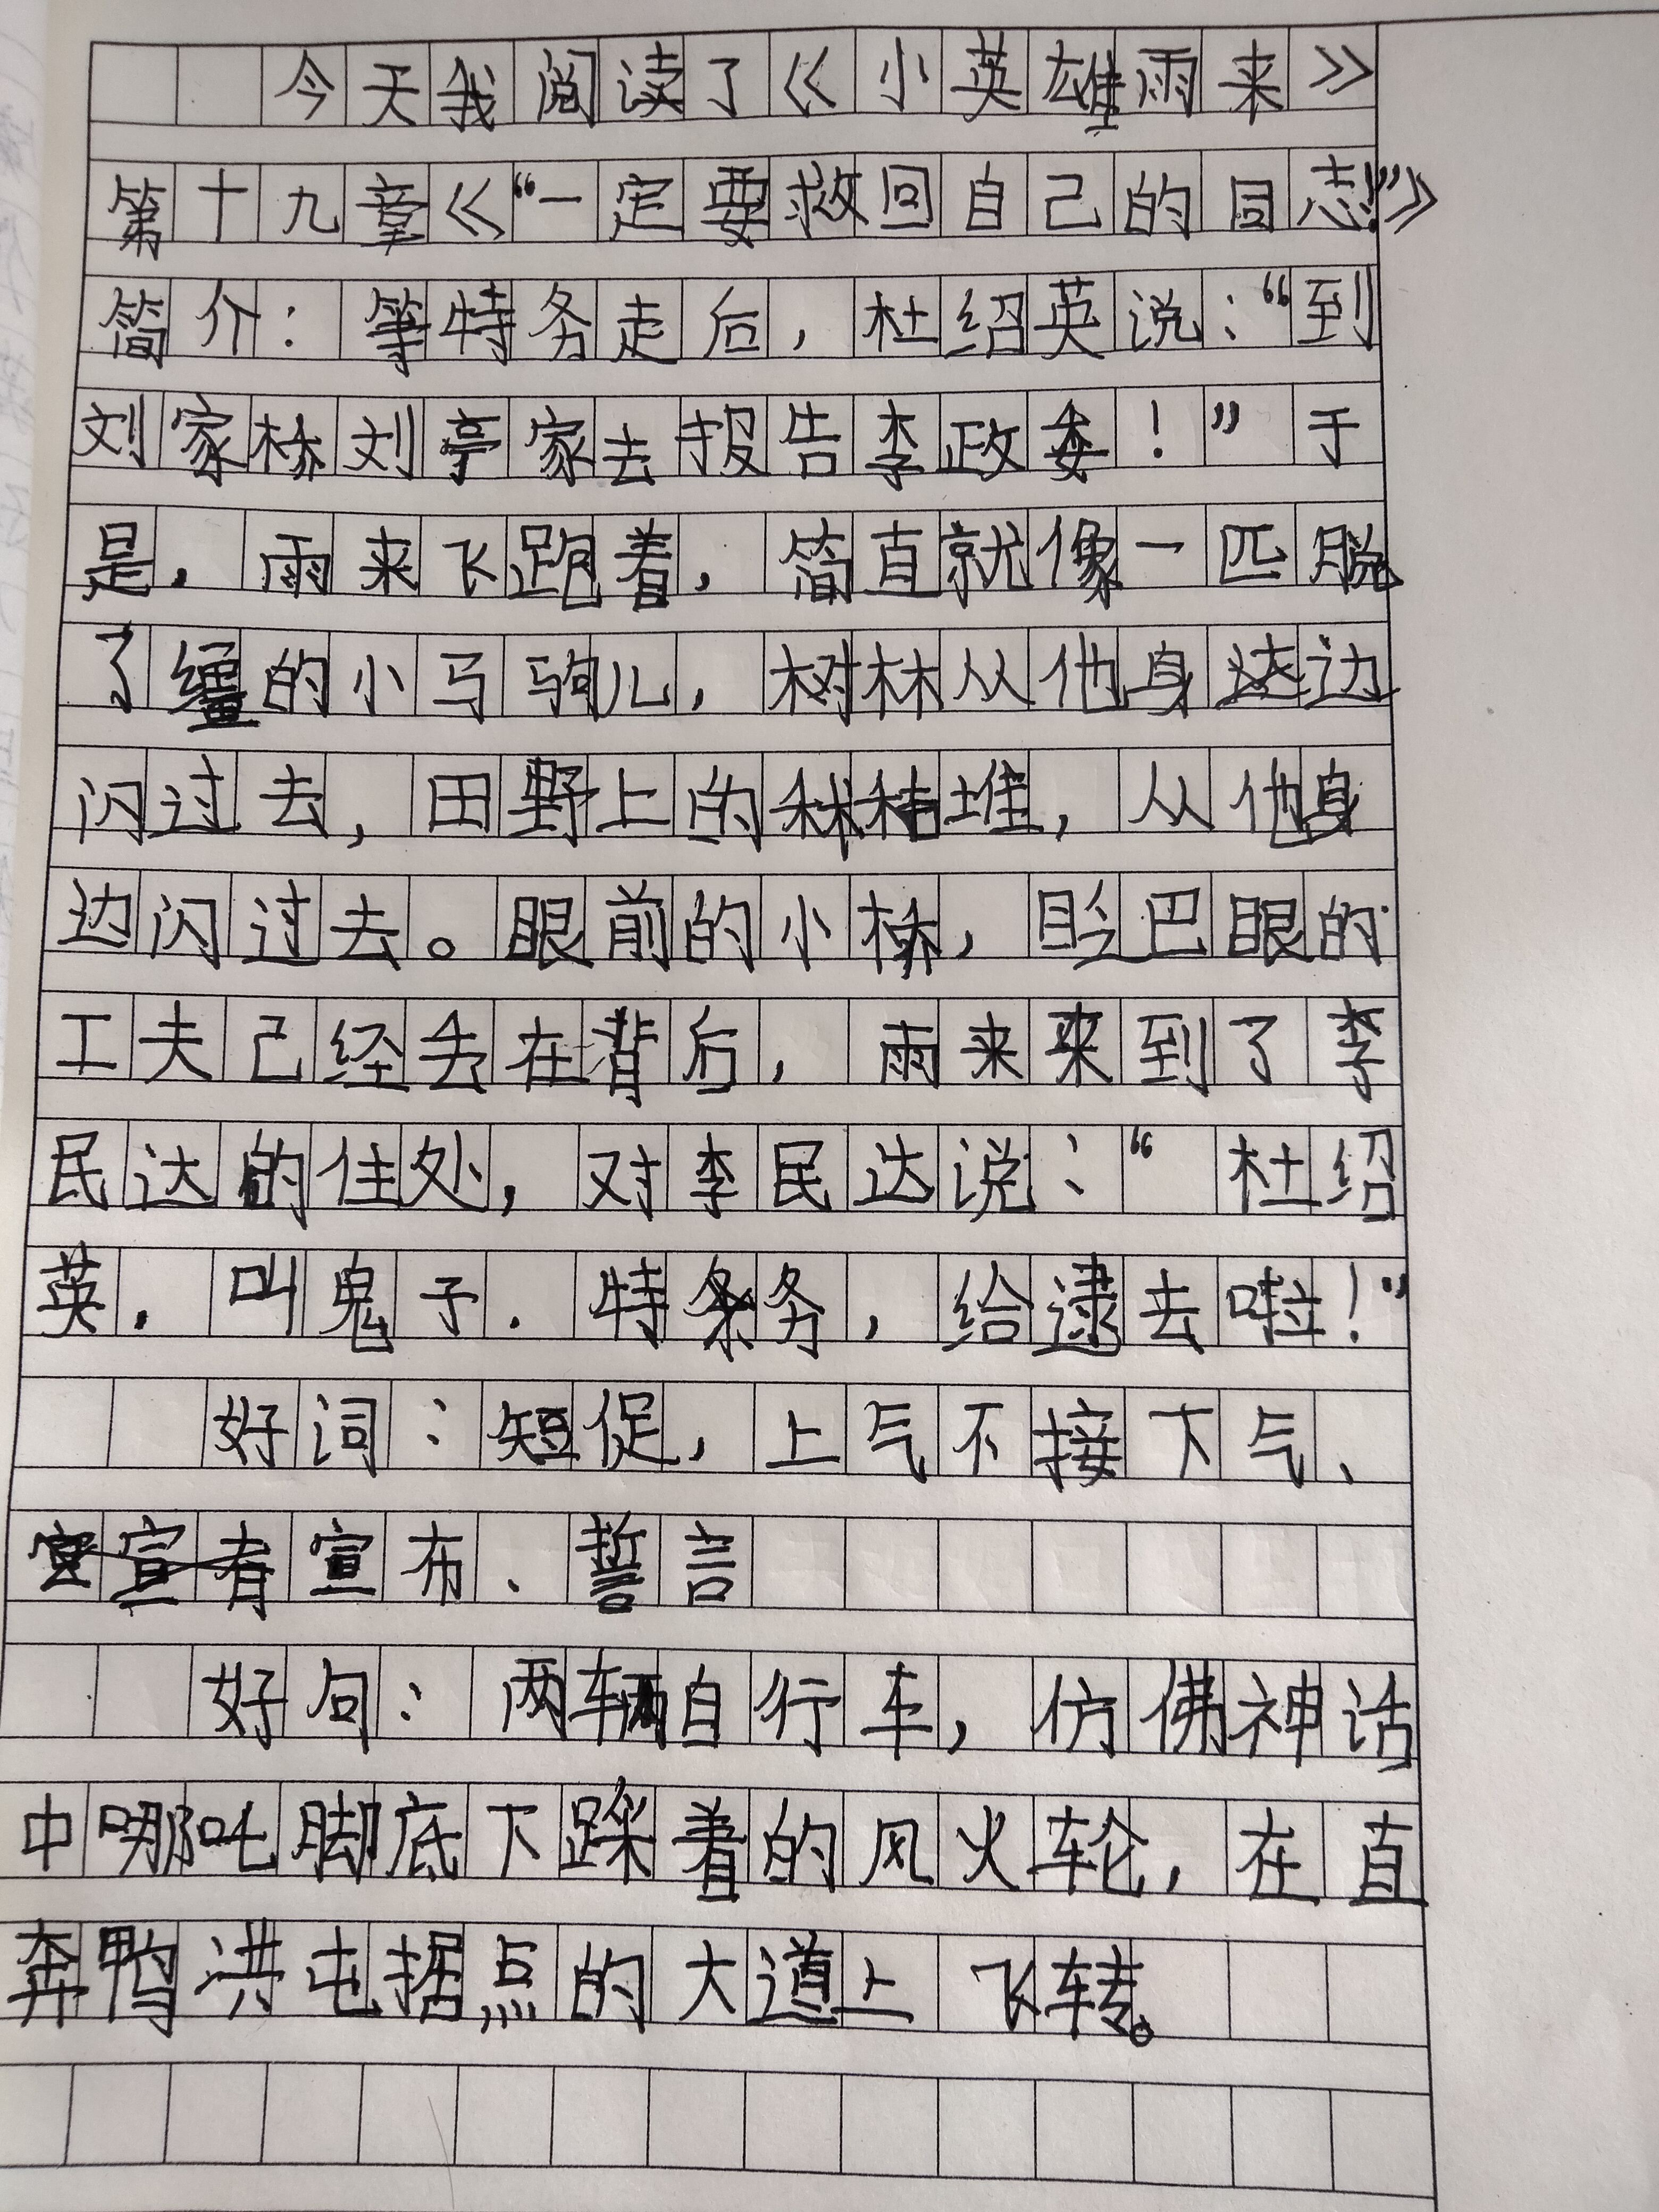 今天我阅读了《小英雄雨来》
第十九章《“一定要救回自己的同志!”》
简介：等特务走后，杜绍英说：“到
刘家桥刘亭家去报告李政委！”于
是，雨来飞跑着，简直就像一匹脱
了缰的小马驹儿，树林从他身边
闪过去，田野上的秫秸堆，从他身
边闪过去。眼前的小桥，眨巴眼的
工夫已经丢在背后，雨来来到了李
民达的住处，对李民达说：“杜绍
英，叫鬼子．特务，给逮去啦！”
好词：短促，上气不接下气、
宣布、誓言
好句：两辆自行车，仿佛神话
中哪吒脚底下踩着的风火轮，在直
奔鸭洪屯据点的大道上飞转。